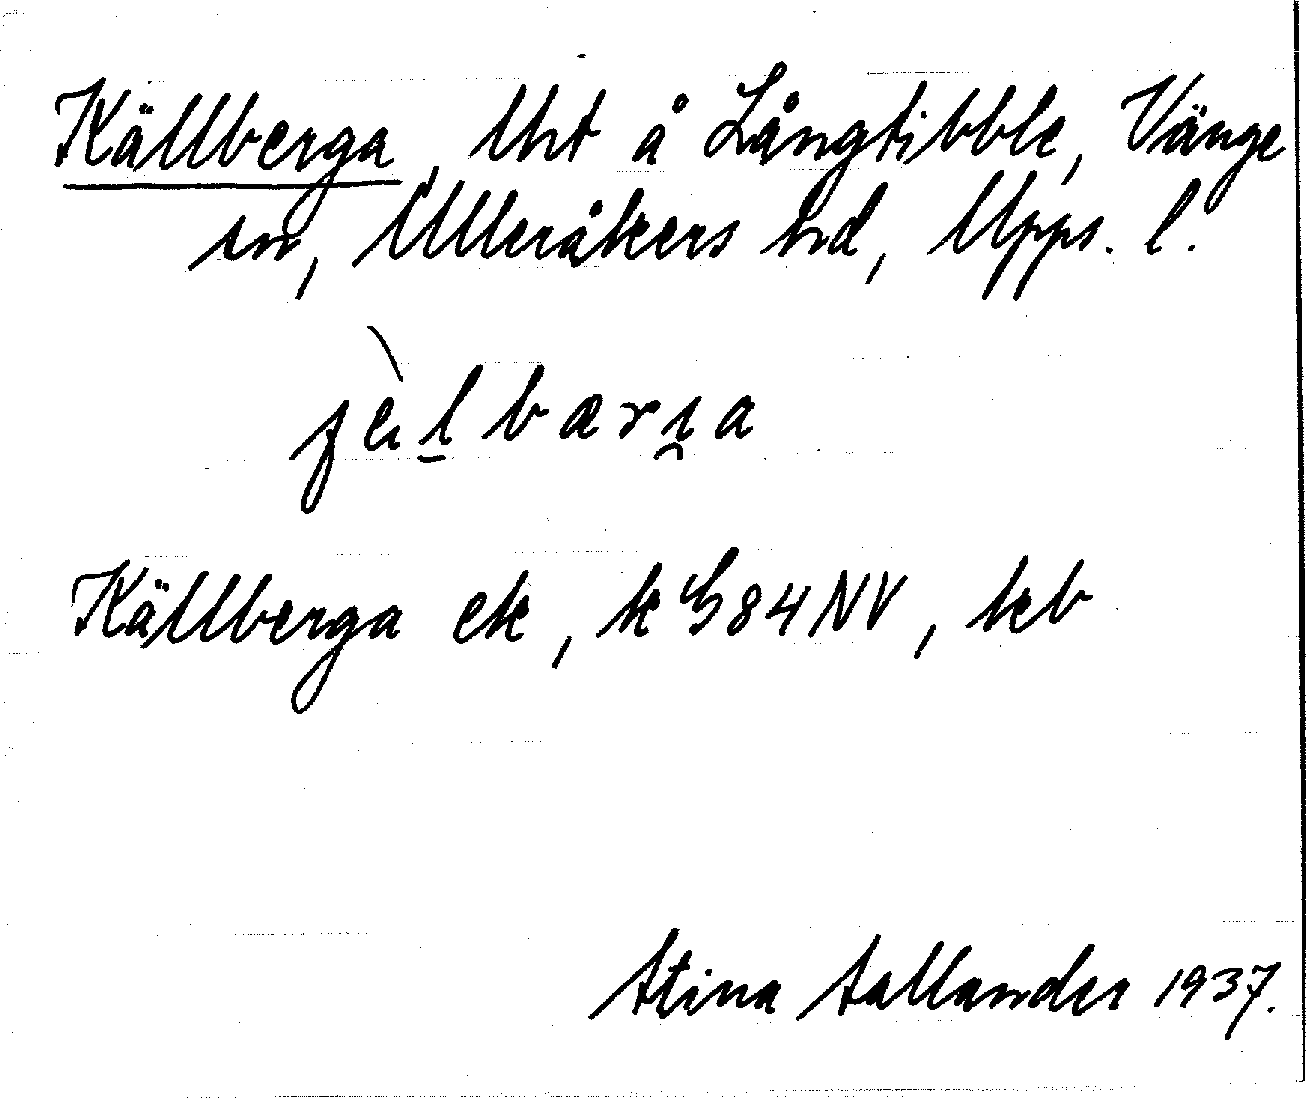 Källberga, lht å Långtibble, Vänge
sn, Ulleråkers hd, Upps. l.
Källberga ek, k G84NV, kb
Stina Sallander 1937.